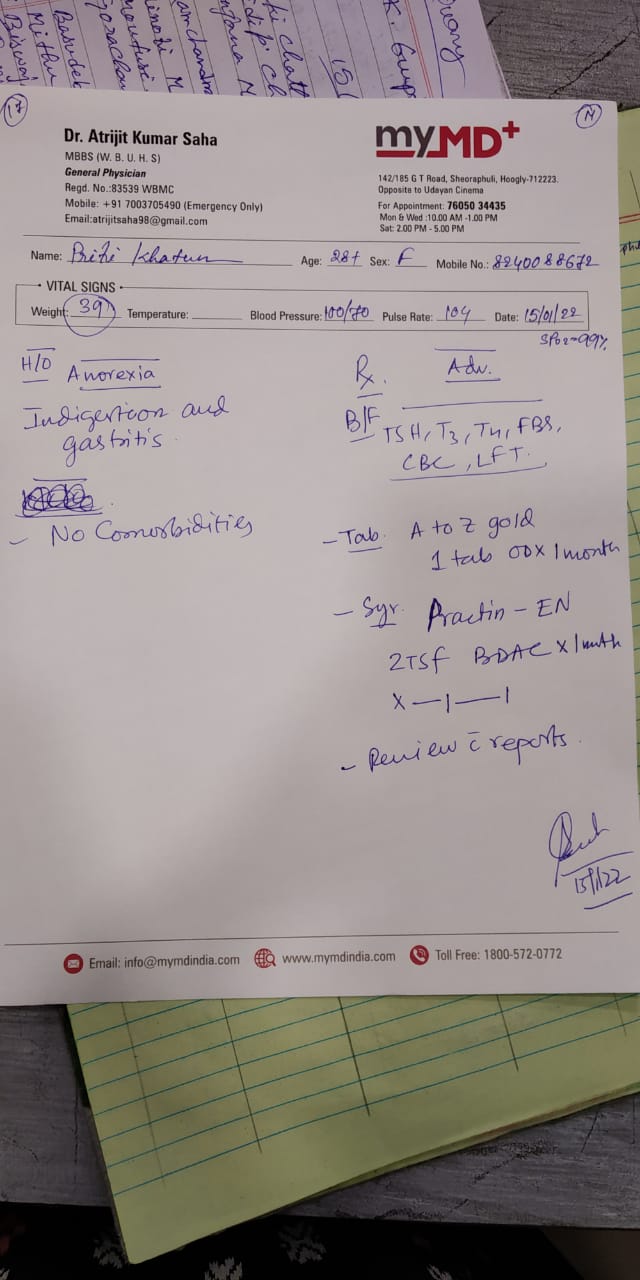 Dr. Atrijit Kumar Saha
MBBS (W. B. U. H. S)
General Physician
Regd. No.:83539 WBMC
Mobile: +91 7003705490 (Emergency Only)
Email:atrijitsaha98@gmail.com
17
N
myMD+
142/185 G T Road, Sheoraphuli, Hoogly-712223.
Opposite to Udayan Cinema
For Appointment: 76050 34435
Mon & Wed :10.00 AM -1.00 PM
Sat: 2.00 PM - 5.00 PM
Name: Priti Khatun Age: 28+ Sex: F Mobile No.: 8240088672
VITAL SIGNS
Weight: 39 Temperature: Blood Pressure: 100/70 Pulse Rate: 104 Date: 15/01/22
SPO2=99%
H/O Anorexia
Indigestion and
gastritis
- No Comorbidities
Rx. Adv.
B/F TSH, T3, T4, FBS,
CBC, LFT.
- Tab. A to Z gold
1 tab OD x 1 month
- Syr. Practin - EN
2TSF BDAC x 1 mnth
X—|—|
- Review c̄ reports.
15/1/22
Email: info@mymdindia.com www.mymdindia.com Toll Free: 1800-572-0772